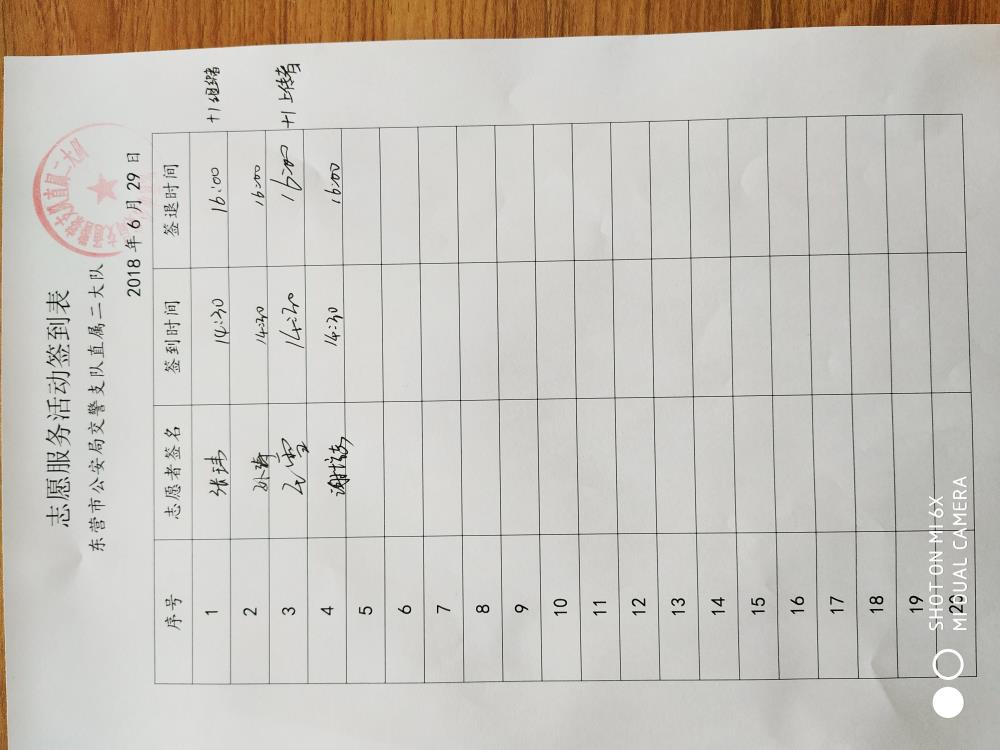 志愿服务活动签到表
东营市公安局交警支队直属二大队
2018 年 6 月 29 日
序号 志愿者签名 签到时间 签退时间
1 张玮 14:30 16:00 +1组织者
2 孙 14:30 16:00
3 雪 14:30 16:00 +1上传者
4 谢 14:30 16:00
5
6
7
8
9
10
11
12
13
14
15
16
17
18
19
20
SHOT ON MI 6X
MI DUAL CAMERA